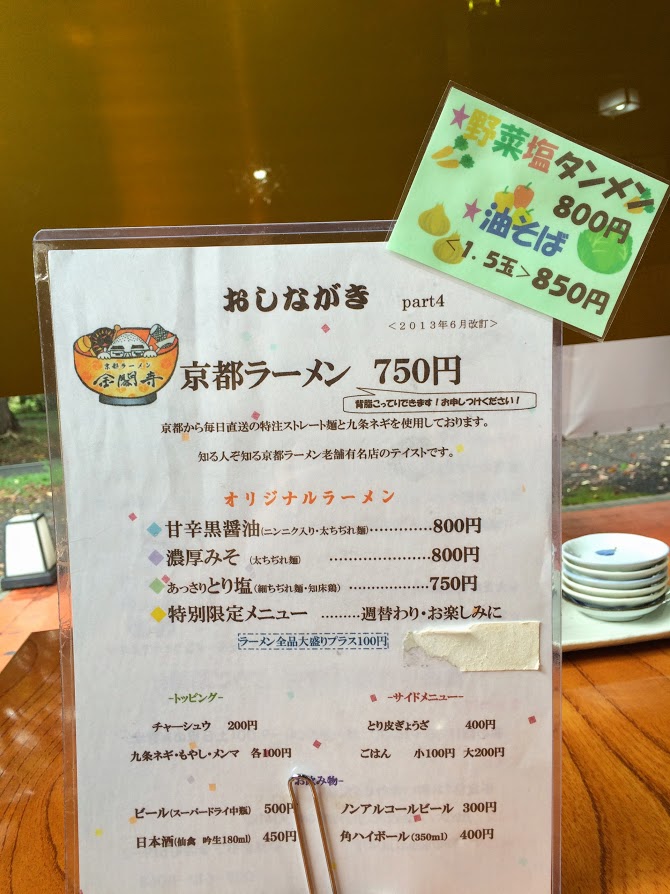 ★野菜塩タンメン
800円
★油そば
<1.5玉>850円
おしながき part4
<2013年6月改訂>
京都ラーメン
金閣寺
京都ラーメン 750円
背脂こってりできます!お申しつけください!
京都から毎日直送の特注ストレート麺と九条ネギを使用しております。
知る人ぞ知る京都ラーメン老舗有名店のテイストです。
オリジナルラーメン
◆甘辛黒醤油(ニンニク入り・太ちぢれ麺)…………800円
◆濃厚みそ (太ちぢれ麺) …………800円
◆あっさりとり塩(細ちぢれ麺・知床鶏)…………750円
◆特別限定メニュー ………週替わり・お楽しみに
ラーメン全品大盛りプラス100円
-トッピング-
チャーシュウ 200円
九条ネギ・もやし・メンマ 各100円
-サイドメニュー-
とり皮ぎょうざ 400円
ごはん 小100円 大200円
お飲み物-
ビール(スーパードライ中瓶) 500円
ノンアルコールビール 300円
日本酒(仙禽 吟生180ml) 450円
角ハイボール(350ml) 400円